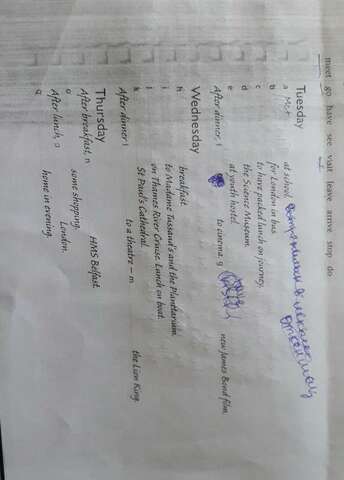 meet go have see visit leave arrive stop do
Tuesday
a Met at school.
b for London in bus
c to have packed lunch on journey.
d the Science Museum.
e at youth hostel.
After dinner, f to cinema. g new James Bond film.
Wednesday
h breakfast.
i to Madame Tussaud's and the Planetarium.
j on Thames River Cruise. Lunch on boat.
k St Paul's Cathedral.
After dinner l to a theatre – m the Lion King.
Thursday
After breakfast, n HMS Belfast.
o some shopping.
After lunch, London.
q home in evening.